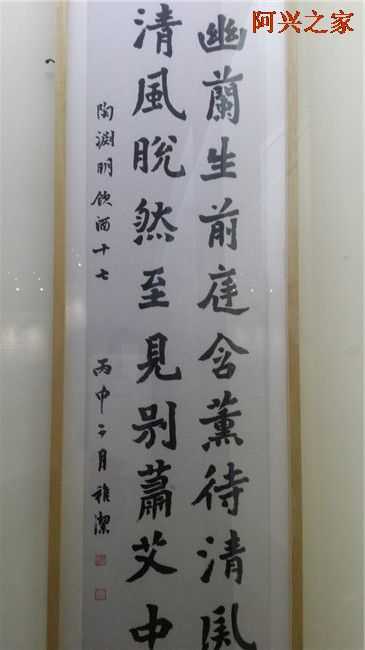 阿兴之家
幽蘭生前庭含薰待清風
清風脱然至見别蕭艾中
陶淵明飲酒十七
丙申二月雅潔